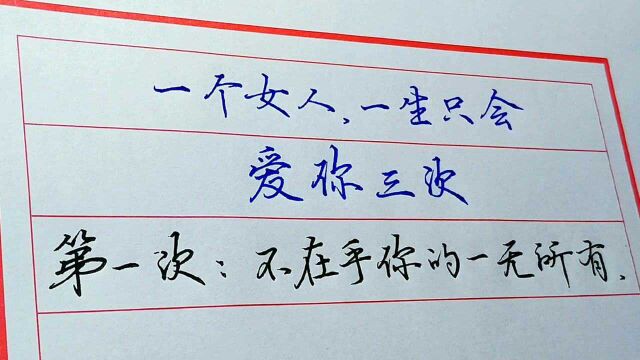 一个女人,一生只会
爱你三次
第一次:不在乎你的一无所有.